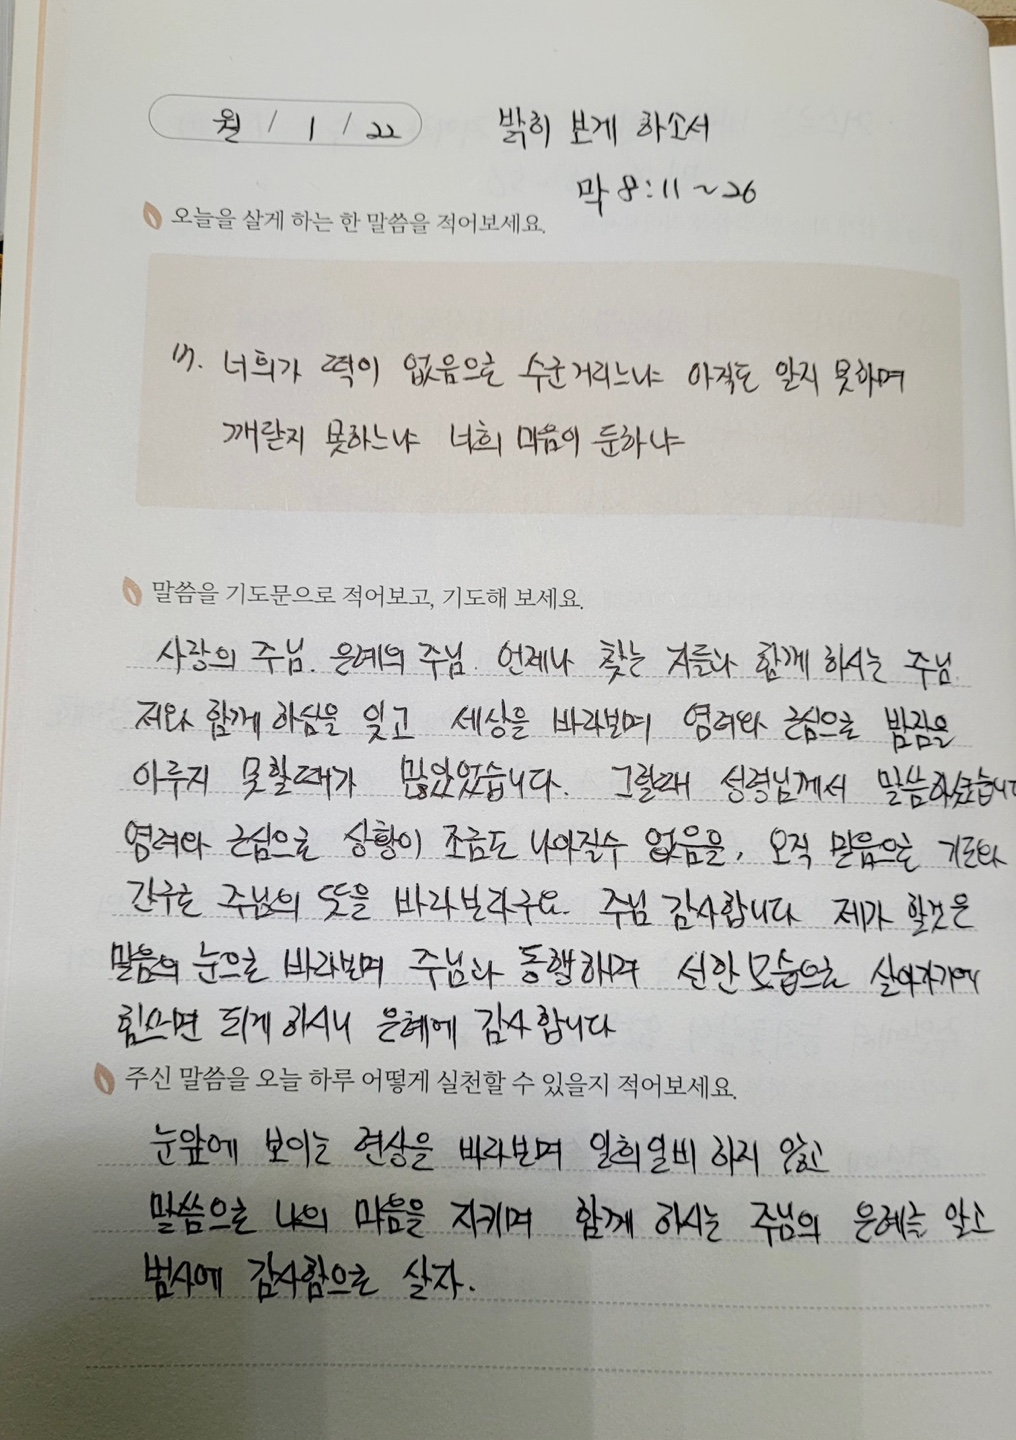 월 / 1 / 22
밝히 보게 하소서
막 8:11~26
오늘을 살게 하는 한 말씀을 적어보세요.
17. 너희가 떡이 없음으로 수군거리느냐 아직도 알지 못하며
깨닫지 못하느냐 너희 마음이 둔하냐
말씀을 기도문으로 적어보고, 기도해 보세요.
사랑의 주님. 은혜의 주님. 언제나 찾는 자들과 함께 하시는 주님.
저와 함께 하심을 잊고 세상을 바라보며 염려와 근심으로 밤잠을
이루지 못할때가 많았었습니다. 그럴때 성령님께서 말씀하셨습니다
염려와 근심으로 상황이 조금도 나아질수 없음을, 오직 믿음으로 기도와
간구로 주님의 뜻을 바라보라구요. 주님 감사합니다 제가 할것은
믿음의 눈으로 바라보며 주님과 동행하며 선한 모습으로 살아가기에
힘쓰면 되게 하시니 은혜에 감사합니다
주신 말씀을 오늘 하루 어떻게 실천할 수 있을지 적어보세요.
눈앞에 보이는 현상을 바라보며 일희일비 하지 않고
말씀으로 나의 마음을 지키며 함께 하시는 주님의 은혜를 알고
범사에 감사함으로 살자.